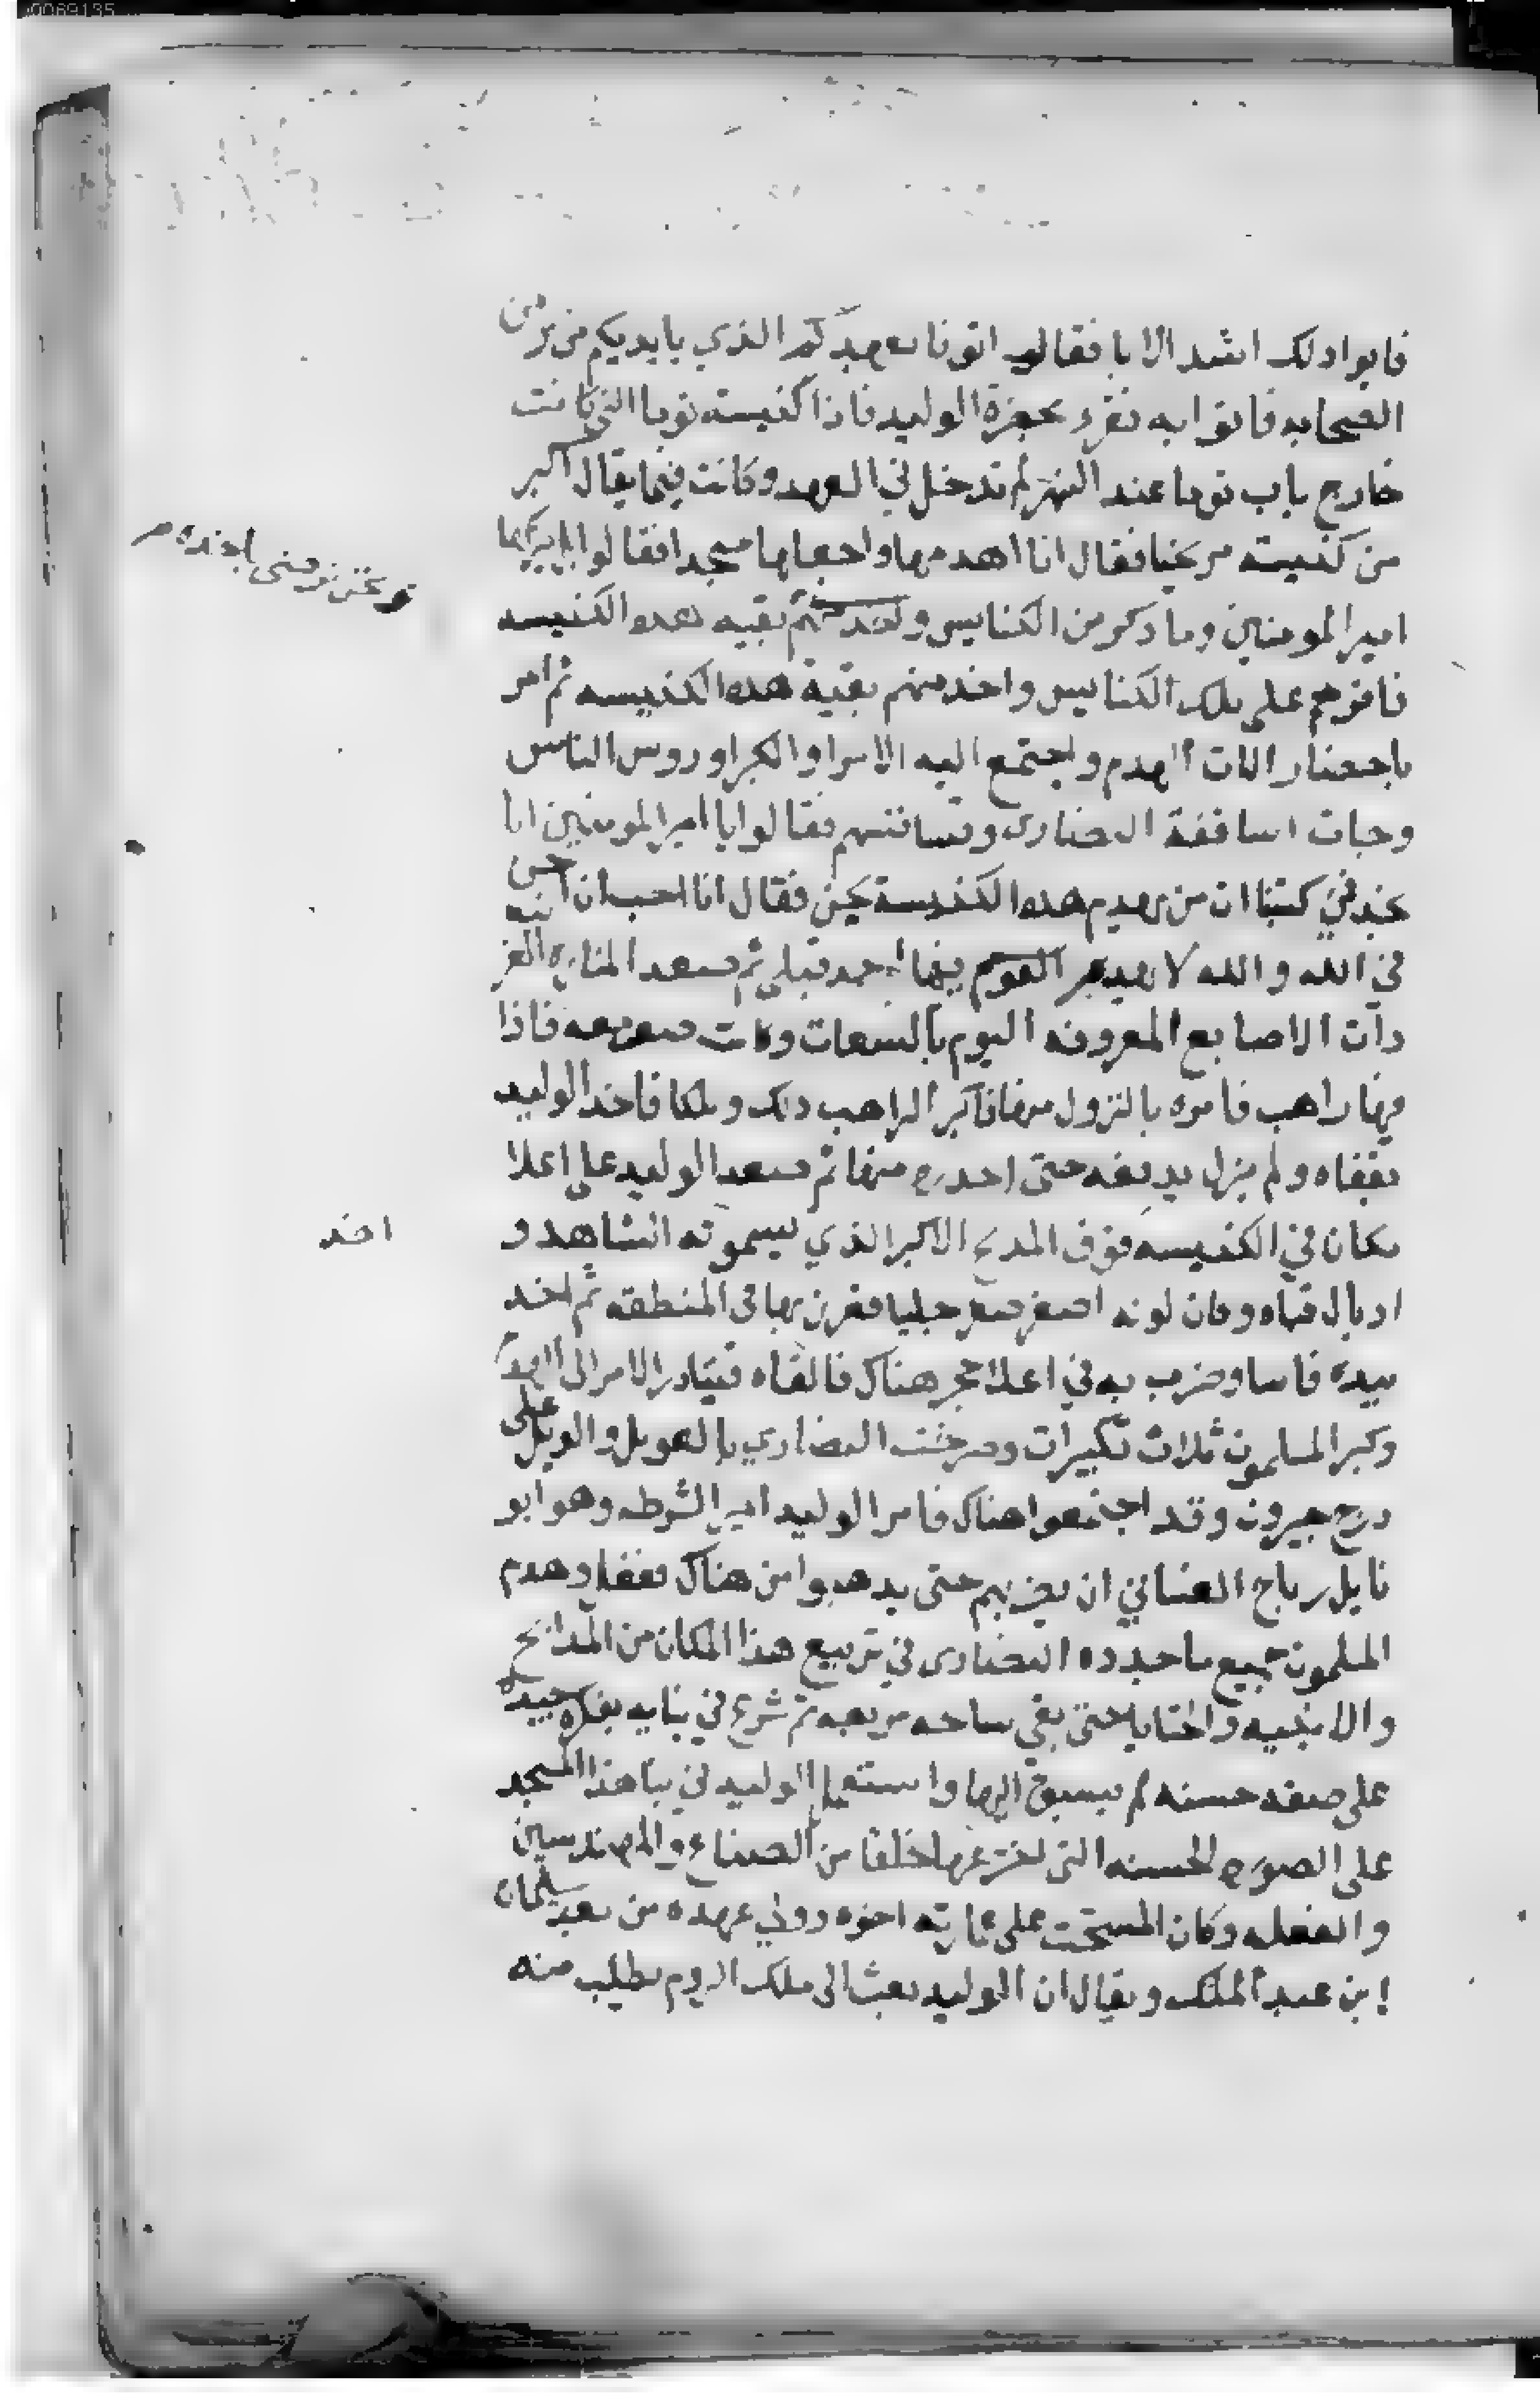 فابوا ذلك اشد الابا فقال ايتونا بعهدكم الذي بايديكم من زمن
الصحابه فاتوا به فقرء بحضرة الوليد فاذا كنيسته توما التي كانت
خارج باب توما عند النهر لم تدخل في العهد وكانت فيما يقال اكبر
من كنيسته مريحنا فقال انا اهدمها واجعلها مسجدا فقالوا بل يتركها
ونحن نرضى باخذه
امير المومنين وما ذكر من الكنايس بقيه هده الكنيسه
فاقرهم على تلك الكنايس واخذ منهم بقية هده الكنيسه ثم امر
باحضار الات الهدم واجتمع اليه الامرا والكبرا وروس الناس
وجات اساقفة النصارى وقساقستهم فقالوا يا امير المومنين انا
نجد في كتبنا ان من يهدم هده الكنيسة يجن فقال انا احب ان اجن
في الله والله لا يهدم فيها احد قبلي ثم صعد المناره
دات الاصابع المعروفه اليوم بالسعات وكانت صومعه فاذا
فيها راهب فامره بالنزول منها فاكبر الراهب دلك وتلكا فاخد الوليد
بقفاه ولم يزل يدفعه حتى احدره منها ثم صعد الوليد على اعلا
مكان في الكنيسه فوق المدبح الاكبر الذي يسمونه الشاهد و
اخد
اديال قباه وكان لونه اصفر سفرجليا فغرزها في المنطقه ثم اخد
بيده فاسا وضرب به في اعلا حجر هناك فالقاه فتبادر الامرا الى الهدم
وكبر المسلمون ثلاث تكبيرات وصرخت النصارى بالعويل والويل على
درج جيرون وقد اجتمعوا هناك فامر الوليد امير الشرطه وهو ابو
نايل رباح الغساني ان يضربهم حتى يدهبوا من هناك ففعل وهدم
المسلمون جميع ما جدده النصارى في تربيع هذا المكان من المدابح
والابنيه والحنايا حتى بقي ساحه مربعه ثم شرع في بنايه بفكره جيده
على صفه حسنه لم يسبق اليها واستعمل الوليد في بنا هذا المسجد
على الصوره الحسنه التي اخترعها خلقا من الصناع والمهندسين
والفعله وكان المستحث على عمارته اخوه وولي عهده من بعده سليمان
ابن عبد الملك ويقال ان الوليد بعث الى ملك الروم يطلب منه